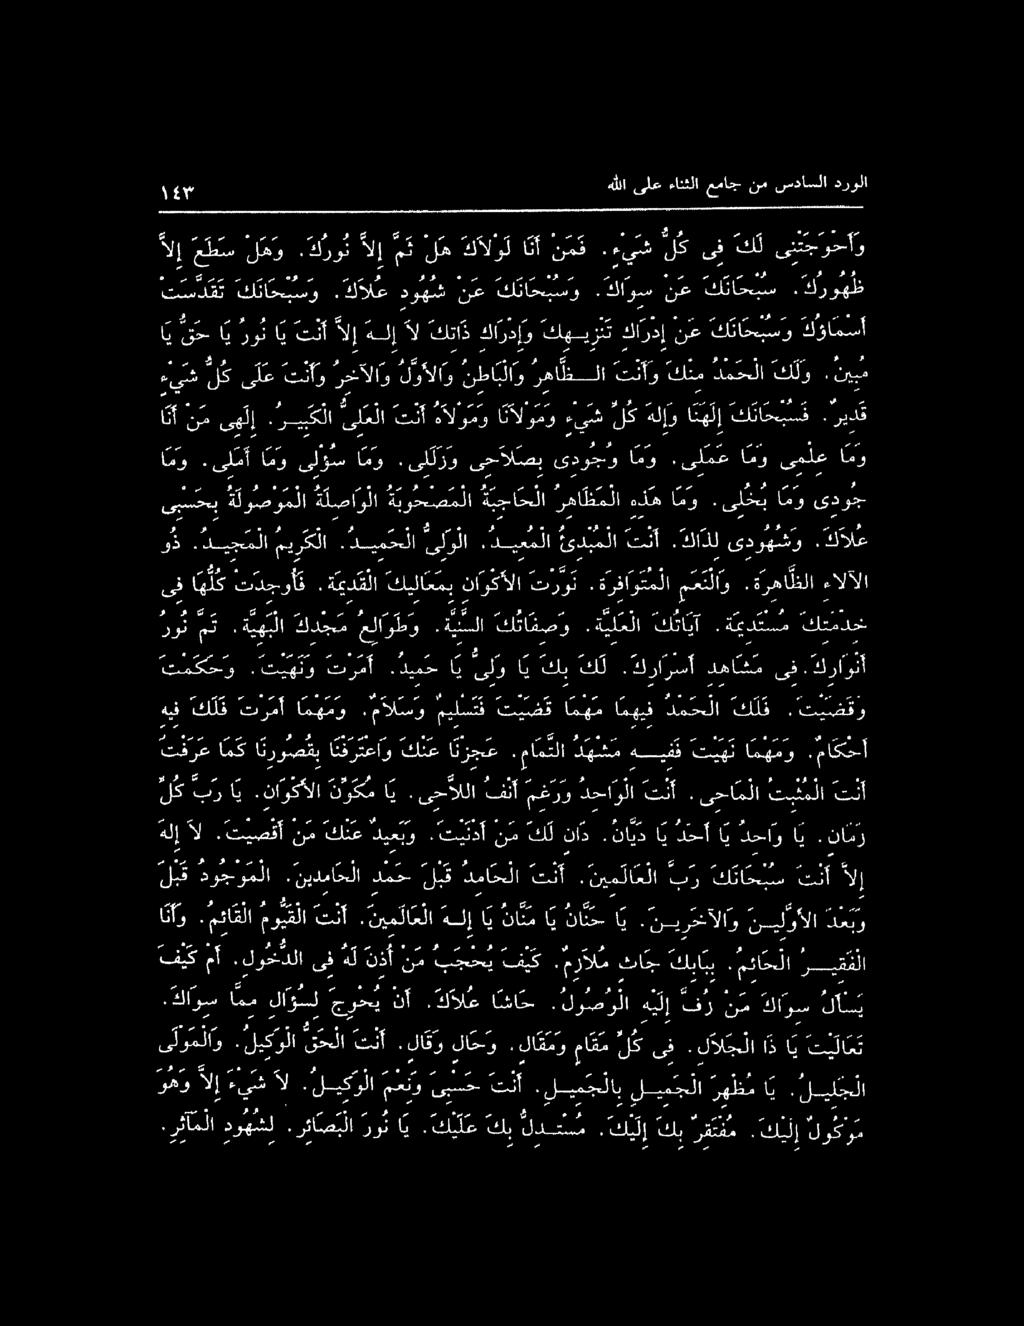 الورد السادس من جامع الثناء على الله ١٤٣
وَأَحْوَجْتَنِى لَكَ فِى كُلِّ شَيْءٍ. فَمَنْ أَنَا لَوْلاَكَ هَلْ ثَمَّ إِلاَّ نُورُكَ. وَهَلْ سَطَعَ إِلاَّ
ظُهُورُكَ. سُبْحَانَكَ عَنْ سِوَاكَ. وَسُبْحَانَكَ عَنْ شُهُودِ عُلاَكَ. وَسُبْحَانَكَ تَقَدَّسَتْ
أَسْمَاؤُكَ وَسُبْحَانَكَ عَنْ إِدْرَاكِ تَنْزِيـهِكَ وَإِدْرَاكِ ذَاتِكَ لاَ إِلـهَ إِلاَّ أَنْتَ يَا نُورُ يَا حَقُّ يَا
مُبِينُ. وَلَكَ الْحَمْدُ مِنْكَ وَأَنْتَ الـظَّاهِرُ وَالْبَاطِنُ وَالأَوَّلُ وَالآخِرُ وَأَنْتَ عَلَى كُلِّ شَيْءٍ
قَدِيرٌ. فَسُبْحَانَكَ إِلَهَنَا وَإِلَهَ كُلِّ شَيْءٍ وَمَوْلاَنَا وَمَوْلاَهُ أَنْتَ الْعَلِىُّ الْكَبِيـرُ. إِلَهِى مَنْ أَنَا
وَمَا عِلْمِى وَمَا عَمَلِى. وَمَا وُجُودِى بِصَلاَحِى وَزَلَلِى. وَمَا سُؤْلِى وَمَا أَمَلِى. وَمَا
جُودِى وَمَا بُخْلِى. وَمَا هَذِهِ الْمَظَاهِرُ الْحَاجِبَةُ الْمَصْحُوبَةُ الْوَاصِلَةُ الْمَوْصُولَةُ بِحَسْبِى
عُلاَكَ. وَشُهُودِى لِذَاكَ. أَنْتَ الْمُبْدِئُ الْمُعِيـدُ. الْوَلِىُّ الْحَمِيـدُ. الْكَرِيمُ الْمَجِيـدُ. ذُو
الآلاَءِ الظَّاهِرَةِ. وَالْنِّعَمِ الْمُتَوَافِرَةِ. نَوَّرْتَ الأَكْوَانَ بِمَعَالِيكَ الْقَدِيمَةِ. فَأُوجِدَتْ كُلُّهَا فِى
خِدْمَتِكَ مُسْتَدِيمَةً. آيَاتُكَ الْعَلِيَّةِ. وَصِفَاتُكَ السَّنِيَّةِ. وَطَوَالِعُ مَجْدِكَ الْبَهِيَّةِ. تَمَّ نُورُ
أَنْوَارِكَ. فِى مَشَاهِدِ أَسْرَارِكَ. لَكَ بِكَ يَا وَلِىُّ يَا حَمِيدُ. أَمَرْتَ وَنَهَيْتَ. وَحَكَمْتَ
وَقَضَيْتَ. فَلَكَ الْحَمْدُ فِيهِمَا مَهْمَا قَضَيْتَ فَتَسْلِيمٌ وَسَلاَمٌ. وَمَهْمَا أَمَرْتَ فَلَكَ فِيهِ
أَحْكَامٌ. وَمَهْمَا نَهَيْتَ فَفِيـهِ مَشْهَدُ التَّمَامِ. عَجِزْنَا عَنْكَ وَاعْتَرَفْنَا بِقُصُورِنَا كَمَا عَرَفْتَ
أَنْتَ الْمُثْبِتُ الْمَاحِى. أَنْتَ الْوَاحِدُ وَرَغِمَ أَنْفُ اللاَّحِى. يَا مُكَوِّنَ الأَكْوَانِ. يَا رَبَّ كُلِّ
زَمَانٍ. يَا وَاحِدُ يَا أَحَدُ يَا دَيَّانُ. دَانٍ لَكَ مَنْ أَدْنَيْتَ. وَبَعِيدٌ عَنْكَ مَنْ أَقْصَيْتَ. لاَ إِلَهَ
إِلاَّ أَنْتَ سُبْحَانَكَ رَبَّ الْعَالَمِينَ. أَنْتَ الْحَامِدُ قَبْلَ حَمْدِ الْحَامِدِينَ. الْمَوْجُودُ قَبْلَ
وَبَعْدَ الأَوَّلِيـنَ وَالآخِرِيـنَ. يَا حَنَّانُ يَا مَنَّانُ يَا إِلـهَ الْعَالَمِينَ. أَنْتَ الْقَيُّومُ الْقَائِمُ. وَأَنَا
الْفَقِيـرُ الْحَائِمُ. بِبَابِكَ جَاثٍ مُلاَزِمٌ. كَيْفَ يُحْجَبُ مَنْ أُذِنَ لَهُ فِى الدُّخُولِ. أَمْ كَيْفَ
يَسْأَلُ سِوَاكَ مَنْ زُفَّ إِلَيْهِ الْوُصُولُ. حَاشَا عُلاَكَ. أَنْ يُحْوِجَ لِسُؤَالٍ مِمَّا سِوَاكَ.
تَعَالَيْتَ يَا ذَا الْجَلاَلِ. فِى كُلِّ مَقَامٍ وَمَقَالٍ. وَحَالٍ وَقَالٍ. أَنْتَ الْحَقُّ الْوَكِيلُ. وَالْمَوْلَى
الْجَلِيـلُ. يَا مُظْهِرَ الْجَمِيـلِ بِالْجَمِيـلِ. أَنْتَ حَسْبِىَ وَنِعْمَ الْوَكِيـلُ. لاَ شَيْءَ إِلاَّ وَهُوَ
مَوْكُولٌ إِلَيْكَ. مُفْتَقِرٌ بِكَ إِلَيْكَ. مُسْتَـدِلٌّ بِكَ عَلَيْكَ. يَا نُورَ الْبَصَائِرِ. لِشُهُودِ الْمَآثِرِ.